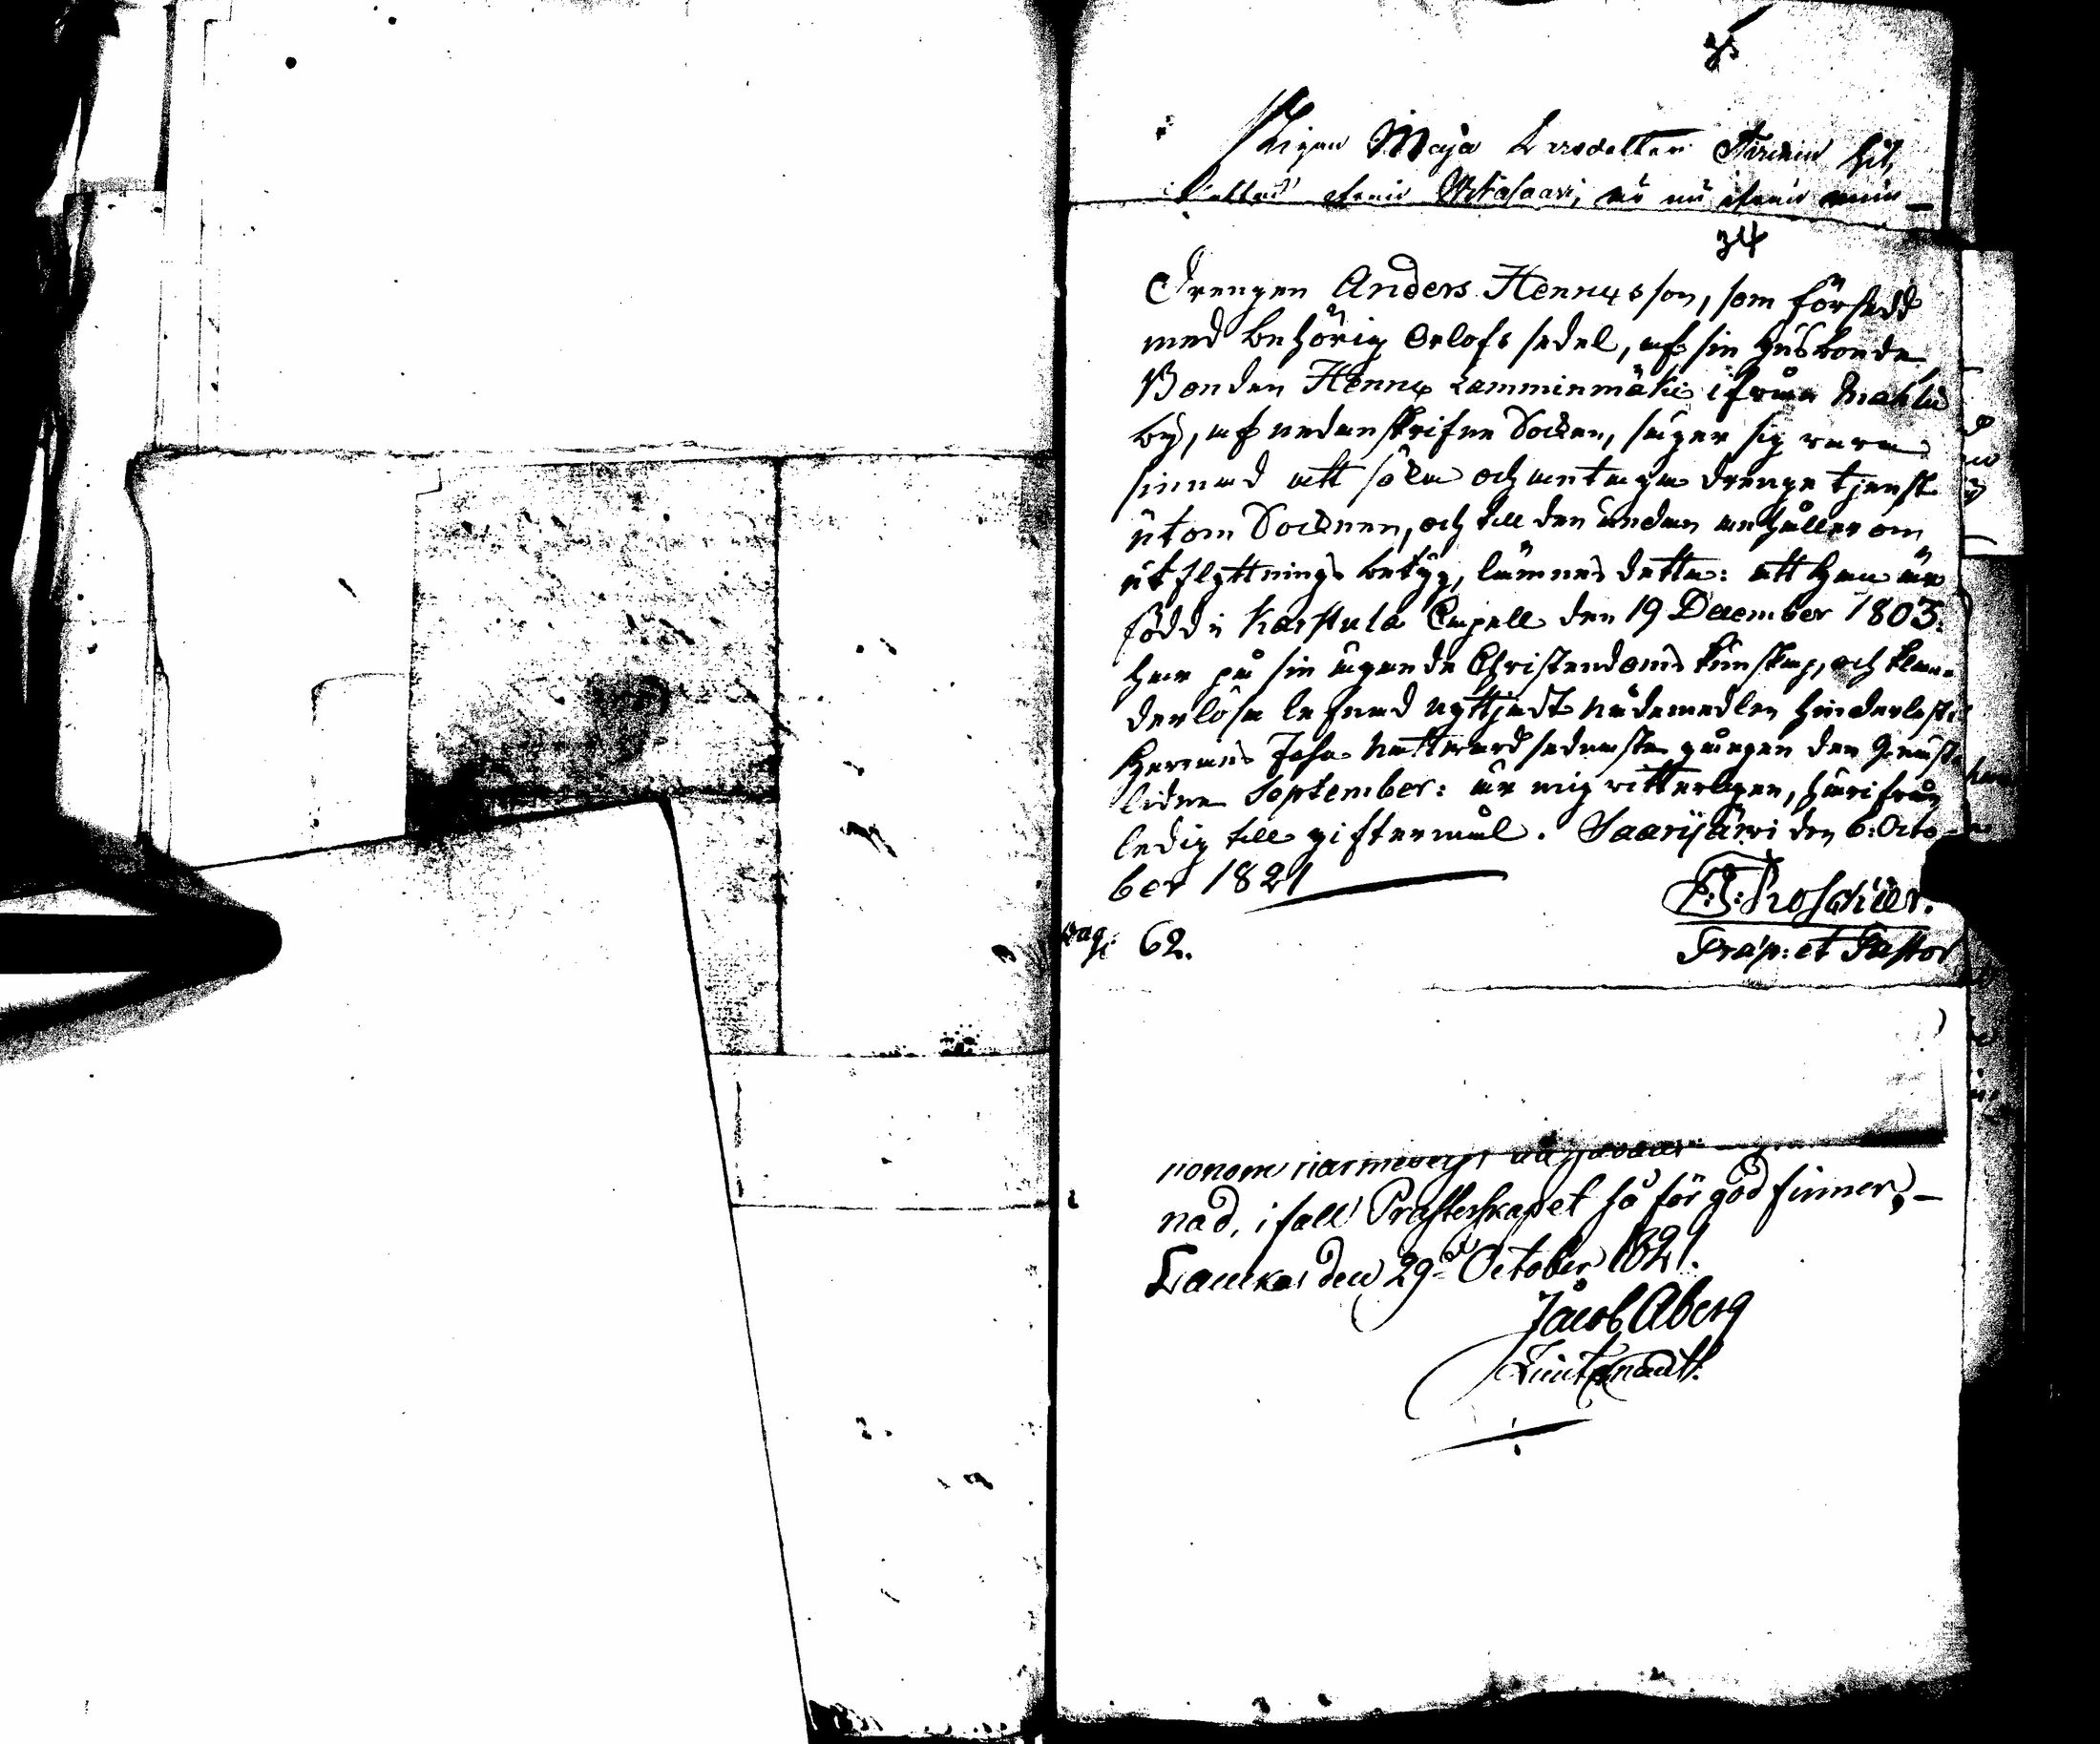 35
Pigan Maja Larsdotter hit
ifrån Wiitasaari, är nu ifrån
34
Drengen Anders Hennrsson, som försedd
med behörig Orlofs sedel, af sin husbonde
Bonden Henric Lamminmäki ifrån Mahlu
by, af nedanskrifne Socken, säger sig vara
sinnad att söka och antaga drenge tjenst
utom Socknen, och till den ändan anhåller om
utflyttnings betyg, lämnas detta: att han är
född i Karstula Capell den 19 December 1803.
har på sin ägande Christendoms kunskap, och klan-
derlösa lefnad nyttjadt nådemedlen hinderlöst
Herrans Jesu Nattvard sednaste gången den 9 näst
lidne September: är mig vitterligen, härifrån
ledig till giftermål. Saarijärwi den 6: Octo-
ber 1821
Roschier.
Præp: et Pastor
Pag: 62.
honom
nad, i fall Prästerskapet så för god finner, –
Lauka den 29de October 1821.
Jacob Aberg
Lieutenant.